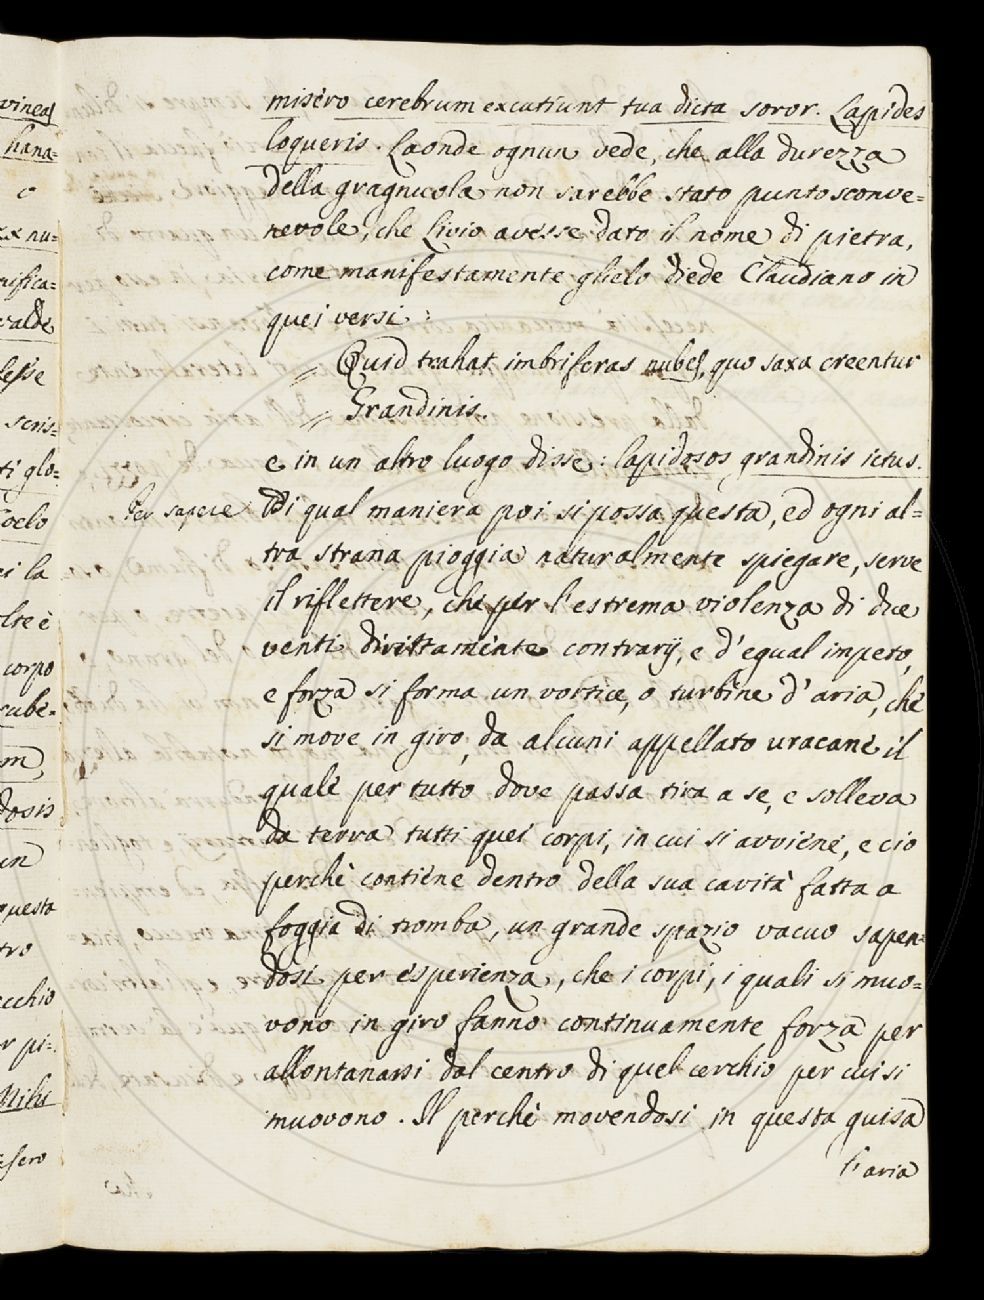 misero cerebrum excutiunt tua dicta soror. Lapides
loqueris. Laonde ognun vede, che alla durezza
della gragnuola non sarebbe stato punto sconve=
nevole, che Livio avesse dato il nome di pietra,
come manifestamente glielo diede Claudiano in
quei versi:
Quid trahat imbriferas nubes, quo saxa creentur
Grandinis.
e in un altro luogo disse: lapidosos grandinis ictus.
Per sapere
Di qual maniera poi si possa questa, ed ogni al=
tra strana pioggia naturalmente spiegare, serve
il riflettere, che per l'estrema violenza di due
venti dirittamente contrarij, e d'egual impeto,
e forza si forma un vortice, o turbine d'aria, che
si move in giro, da alcuni appellato uracane il
quale per tutto dove passa tira a se, e solleva
da terra tutti quei corpi, in cui si avviene, e cio
perchè contiene dentro della sua cavità fatta a
foggia di tromba, un grande spazio vacuo sapen=
dosi per esperienza, che i corpi, i quali si muo=
vono in giro fanno continuamente forza per
allontanarsi dal centro di quel cerchio per cui si
muovono. Il perchè movendosi in questa guisa
l'aria